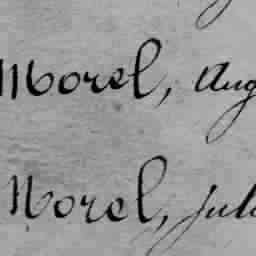 Morel, Aug
Morel, Jul